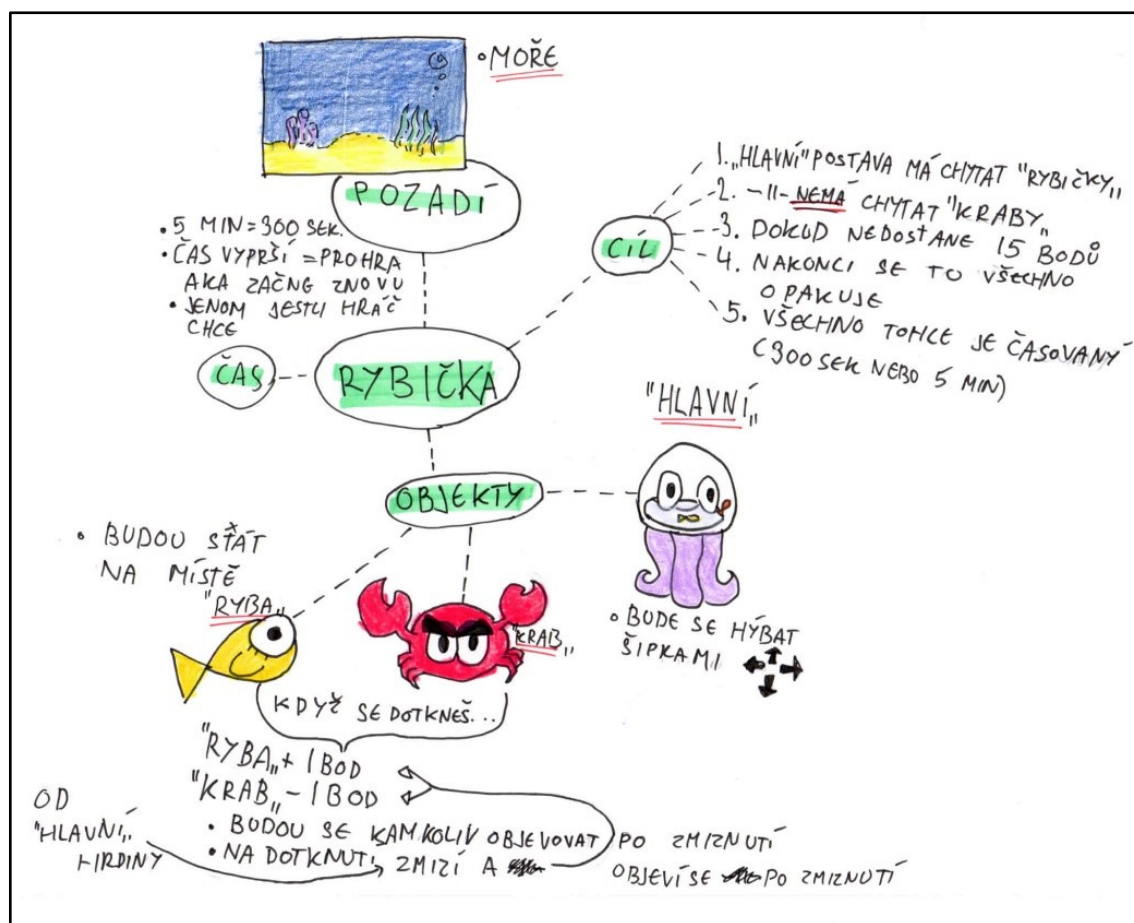 • MOŘE
POZADÍ
• 5 MIN = 300 SEK.
• ČAS VYPRŠÍ = PROHRA
AKA ZAČNE ZNOVU
• JENOM JESTLI HRÁČ
CHCE
ČAS
RYBIČKA
CÍL
1. „HLAVNÍ" POSTAVA MÁ CHYTAT "RYBIČKY„
2. -||- NEMÁ CHYTAT "KRABY„
3. DOKUD NEDOSTANE 15 BODŮ
4. NAKONCI SE TO VŠECHNO
OPAKUJE
5. VŠECHNO TOHLE JE ČASOVANÝ
(300 SEK NEBO 5 MIN)
OBJEKTY
"HLAVNÍ„
• BUDE SE HÝBAT
ŠIPKAMI
• BUDOU STÁT
NA MÍSTĚ
"RYBA„
"KRAB„
KDYŽ SE DOTKNEŠ...
"RYBA„ + 1 BOD
"KRAB„ - 1 BOD
• BUDOU SE KAMKOLIV OBJEVOVAT PO ZMIZNUTÍ
• NA DOTKNUTÍ ZMIZÍ A OBJEVÍ SE PO ZMIZNUTÍ
OD
"HLAVNÍ„
HRDINY